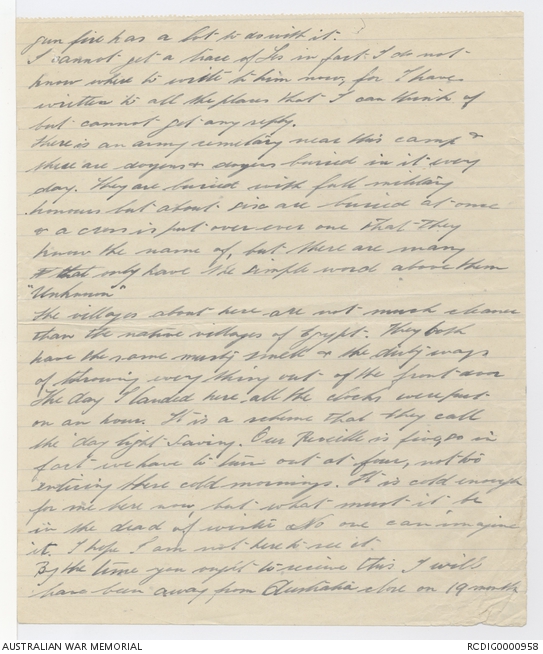 gun fire has a lot to do with it.
I cannot get a trace of Les in fact I do not
know where to write to him now, for I have
written to all the places that I can think of
but cannot get any reply.
There is an army cemetary near this camp &
there are dozens & dozens buried in it every
day. They are buried with full military
honours but about six are buried at once
& a cross is put over ever one that they
know the name of, but there are many
that only have the simple word above them
"Unknown"
The villages about here are not much cleaner
than the native villages of Egypt. They both
have the same musty smell & the dirty ways
of throwing every thing out of the front door
The day I landed here all the clocks were put
on an hour. It is a scheme that they call
the day light saving. Our Reveille is five, so in
fact we have to turn out at four, not to
enticing these cold mornings. It is cold enough
for me here now, but what must it be
in the dead of winter No one can imagine
it. I hope I am not here to see it
By the time you ought to receive this I will
have been away from Australia close on 19 months
AUSTRALIAN WAR MEMORIAL
RCDIG0000958